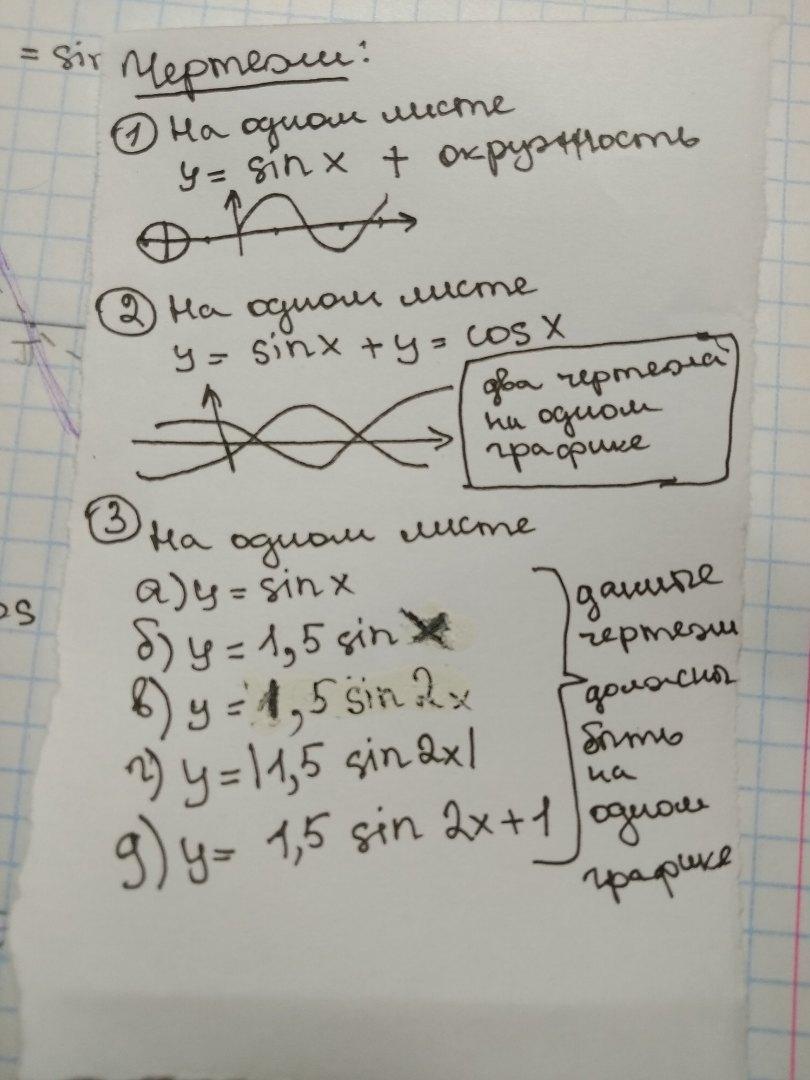 = sin
Чертежи:
① На одном листе
y = sin x + окружность
② На одном листе
y = sin x + y = cos x
два чертежа
на одном
графике
③ На одном листе
а) y = sin x
б) y = 1,5 sin x
в) y = 1,5 sin 2x
г) y = |1,5 sin 2x|
д) y = 1,5 sin 2x + 1
данные
чертежи
должны
быть
на
одном
графике